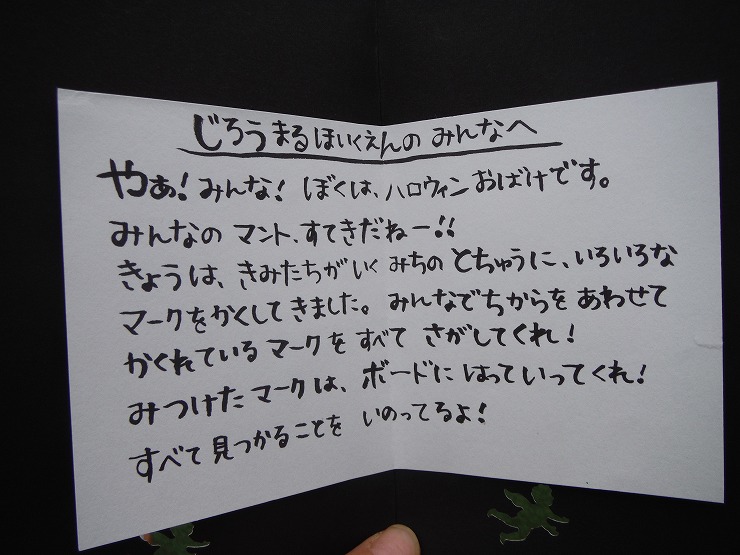 じろうまるほいくえんのみんなへ
やぁ!みんな!ぼくは、ハロウィンおばけです。
みんなのマント、すてきだねー!!
きょうは、きみたちがいくみちのとちゅうに、いろいろな
マークをかくしてきました。みんなでちからをあわせて
かくれているマークをすべてさがしてくれ!
みつけたマークは、ボードにはっていってくれ!
すべて見つかることをいのってるよ!